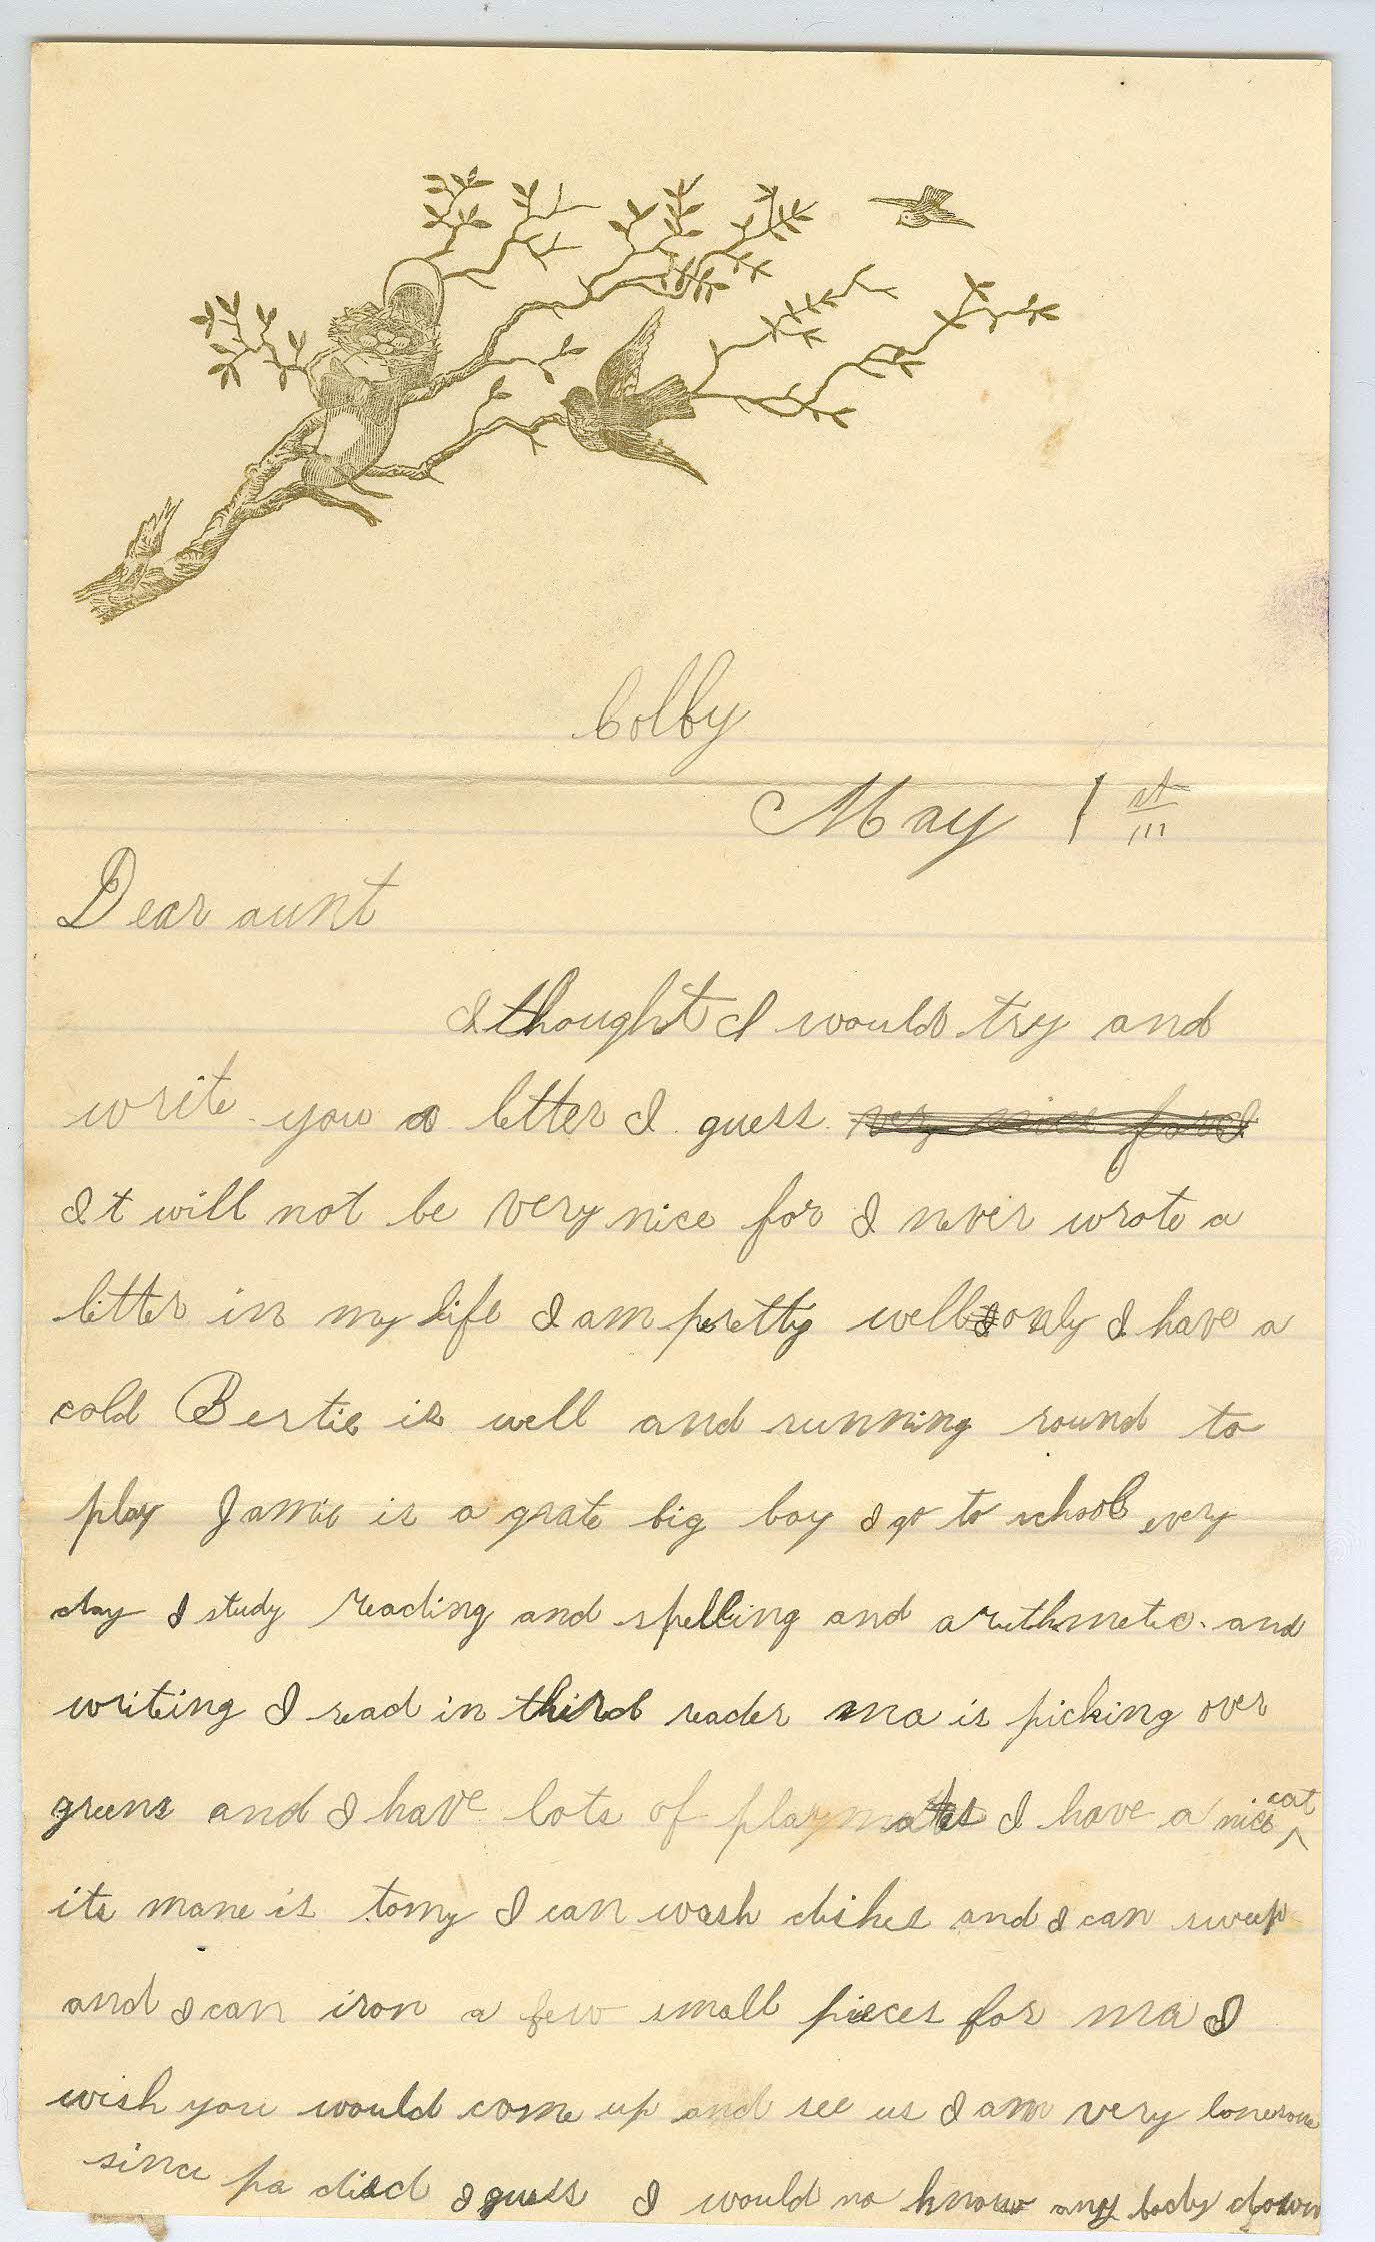 Colby
May 1st
Dear aunt
I thought I would try and
write you a letter I guess
It will not be very nice for I never wrote a
letter in my life I am pretty well only I have a
cold Bertie is well and running round to
play Jamie is a grate big boy I go to school every
day I study reading and spelling and arithmetic and
writing I read in third reader ma is picking over
greens and I have lots of playmates I have a nice cat
its mane is tomy I can wash dishes and I can sweep
and I can iron a few small pieces for ma I
wish you would come up and see us I am very lonesome
since pa died I guess I would no know any body down